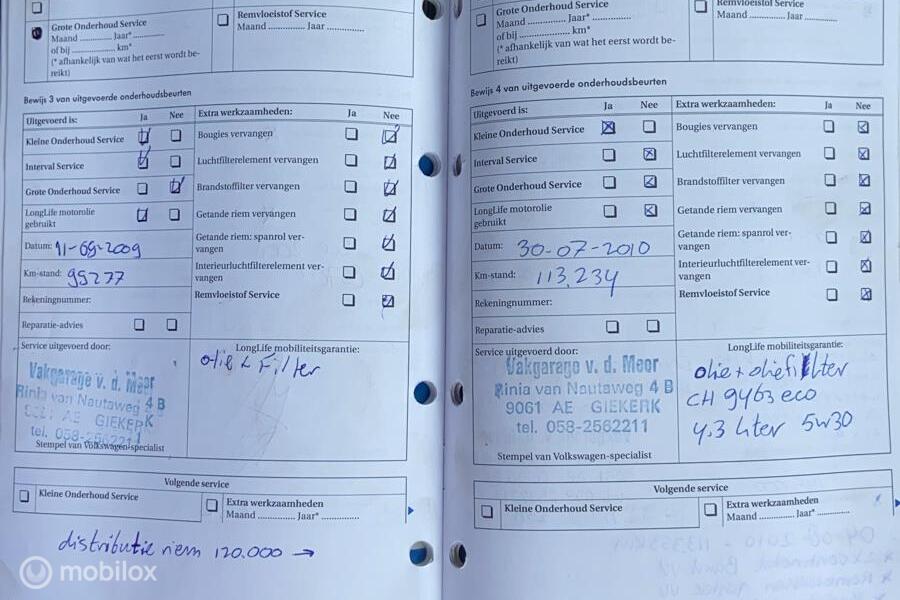 Grote Onderhoud Service
Maand .............. Jaar* ..............
of bij .............. km*
(* afhankelijk van wat het eerst wordt be-
reikt)
Remvloeistof Service
Maand .............. Jaar ..............
Bewijs 3 van uitgevoerde onderhoudsbeurten
Uitgevoerd is:
Ja
Nee
Kleine Onderhoud Service
Interval Service
Grote Onderhoud Service
LongLife motorolie
gebruikt
Datum: 11-09-2009
Km-stand: 95277
Rekeningnummer:
Reparatie-advies
Extra werkzaamheden:
Ja
Nee
Bougies vervangen
Luchtfilterelement vervangen
Brandstoffilter vervangen
Getande riem vervangen
Getande riem: spanrol ver-
vangen
Interieurluchtfilterelement ver-
vangen
Remvloeistof Service
Service uitgevoerd door:
Vakgarage v. d. Meer
Rinia van Nautaweg 4 B
9061 AE GIEKERK
tel. 058-2562211
Stempel van Volkswagen-specialist
LongLife mobiliteitsgarantie:
olie & Filter
Volgende service
Kleine Onderhoud Service
Extra werkzaamheden
Maand .............. Jaar* ..............
distributie riem 120.000 →
Grote Onderhoud Service
Maand .............. Jaar* ..............
of bij .............. km*
(* afhankelijk van wat het eerst wordt be-
reikt)
Remvloeistof Service
Maand .............. Jaar ..............
Bewijs 4 van uitgevoerde onderhoudsbeurten
Uitgevoerd is:
Ja
Nee
Kleine Onderhoud Service
Interval Service
Grote Onderhoud Service
LongLife motorolie
gebruikt
Datum: 30-07-2010
Km-stand: 113.234
Rekeningnummer:
Reparatie-advies
Extra werkzaamheden:
Ja
Nee
Bougies vervangen
Luchtfilterelement vervangen
Brandstoffilter vervangen
Getande riem vervangen
Getande riem: spanrol ver-
vangen
Interieurluchtfilterelement ver-
vangen
Remvloeistof Service
Service uitgevoerd door:
Vakgarage v. d. Meer
Rinia van Nautaweg 4 B
9061 AE GIEKERK
tel. 058-2562211
Stempel van Volkswagen-specialist
LongLife mobiliteitsgarantie:
olie + oliefilter
CH 9463 eco
4,3 liter 5w30
Volgende service
Kleine Onderhoud Service
Extra werkzaamheden
Maand .............. Jaar* ..............
mobilox